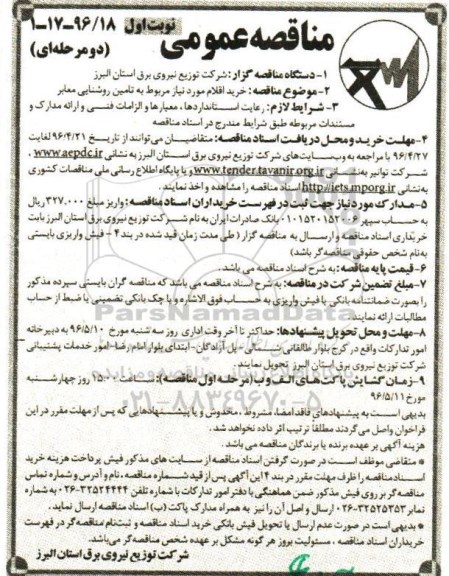 نوبت اول ۱۸/۹۶-۱۷-۱
مناقصه عمومی (دو مرحله‌ای)
۱- دستگاه مناقصه گزار: شرکت توزیع نیروی برق استان البرز
۲- موضوع مناقصه: خرید اقلام مورد نیاز مربوط به تامین روشنایی معابر
۳- شرایط لازم: رعایت استانداردها، معیارها و الزامات فنی و ارائه مدارک و
مستندات مربوطه طبق شرایط مندرج در اسناد مناقصه
۴- مهلت خرید و محل دریافت اسناد مناقصه: متقاضیان می‌توانند از تاریخ ۹۶/۴/۲۱ لغایت
۹۶/۴/۲۷ با مراجعه به وب‌سایت‌های شرکت توزیع نیروی برق استان البرز به نشانی www.aepdc.ir ،
شرکت توانیر به نشانی www.tender.tavanir.org.ir و یا پایگاه اطلاع رسانی ملی مناقصات کشوری
به نشانی http://iets.mporg.ir اسناد مناقصه را مشاهده و اخذ نمایند.
۵- مدارک مورد نیاز جهت ثبت در فهرست خریداران اسناد مناقصه: واریز مبلغ ۳۲۷.۰۰۰ ریال
به حساب سپهر بانک صادرات ایران به نام شرکت توزیع نیروی برق استان البرز بابت
خریداری اسناد مناقصه و ارسال به مناقصه گزار (طی مدت زمان قید شده در بند ۴ - فیش واریزی بایستی
به نام شخص حقوقی مناقصه‌گر باشد)
۶- قیمت پایه مناقصه: به شرح اسناد مناقصه می باشد.
۷- مبلغ تضمین شرکت در مناقصه: به شرح اسناد مناقصه می باشد که مناقصه گران بایستی سپرده مذکور
را بصورت ضمانتنامه بانکی یا فیش واریزی به حساب فوق الاشاره و یا چک بانکی تضمینی یا ضبط از حساب
مطالبات ارائه نمایند.
۸- مهلت و محل تحویل پیشنهادها: حداکثر تا آخر وقت اداری روز سه شنبه مورخ ۹۶/۵/۱۰ به دبیرخانه
امور تدارکات واقع در کرج بلوار طالقانی شمالی - پل آزادگان - ابتدای بلوار امام رضا - امور خدمات پشتیبانی
شرکت توزیع نیروی برق استان البرز تحویل نمایند.
۹- زمان گشایش پاکت‌های الف و ب (مرحله اول مناقصه): ساعت ۱۵:۰۰ روز چهارشنبه
مورخ ۹۶/۵/۱۱
بدیهی است به پیشنهادهای فاقد امضا، مشروط، مخدوش و یا پیشنهادهایی که پس از مهلت مقرر در این
فراخوان واصل می‌گردند مطلقا ترتیب اثر داده نخواهد شد.
هزینه آگهی بر عهده برنده یا برندگان مناقصه می باشد.
* متقاضی موظف است در صورت گرفتن اسناد مناقصه از سایت های مذکور فیش پرداخت هزینه خرید
اسناد مناقصه را ظرف مهلت مقرر در بند ۴ این آگهی پس از قید شماره مناقصه، نام و آدرس و شماره تماس
مناقصه‌گر بر روی فیش مذکور ضمن هماهنگی با دفتر امور تدارکات با شماره تلفن ۳۲۵۲۴۴۴۴-۰۲۶ به شماره
نمابر ۳۲۵۲۵۳۵۳-۰۲۶ ارسال و اصل آن را نیز به همراه مدارک پاکت (ب) اسناد مناقصه ارسال نماید.
* بدیهی است در صورت عدم ارسال یا تحویل فیش بانکی خرید اسناد مناقصه و ثبت‌نام مناقصه‌گر در فهرست
خریداران اسناد مناقصه، مسئولیت بروز هر گونه مشکل بر عهده شخص مناقصه‌گر می‌باشد.
شرکت توزیع نیروی برق استان البرز
ParsNamadData
۰۲۱-۸۸۳۴۹۶۷۰-۵